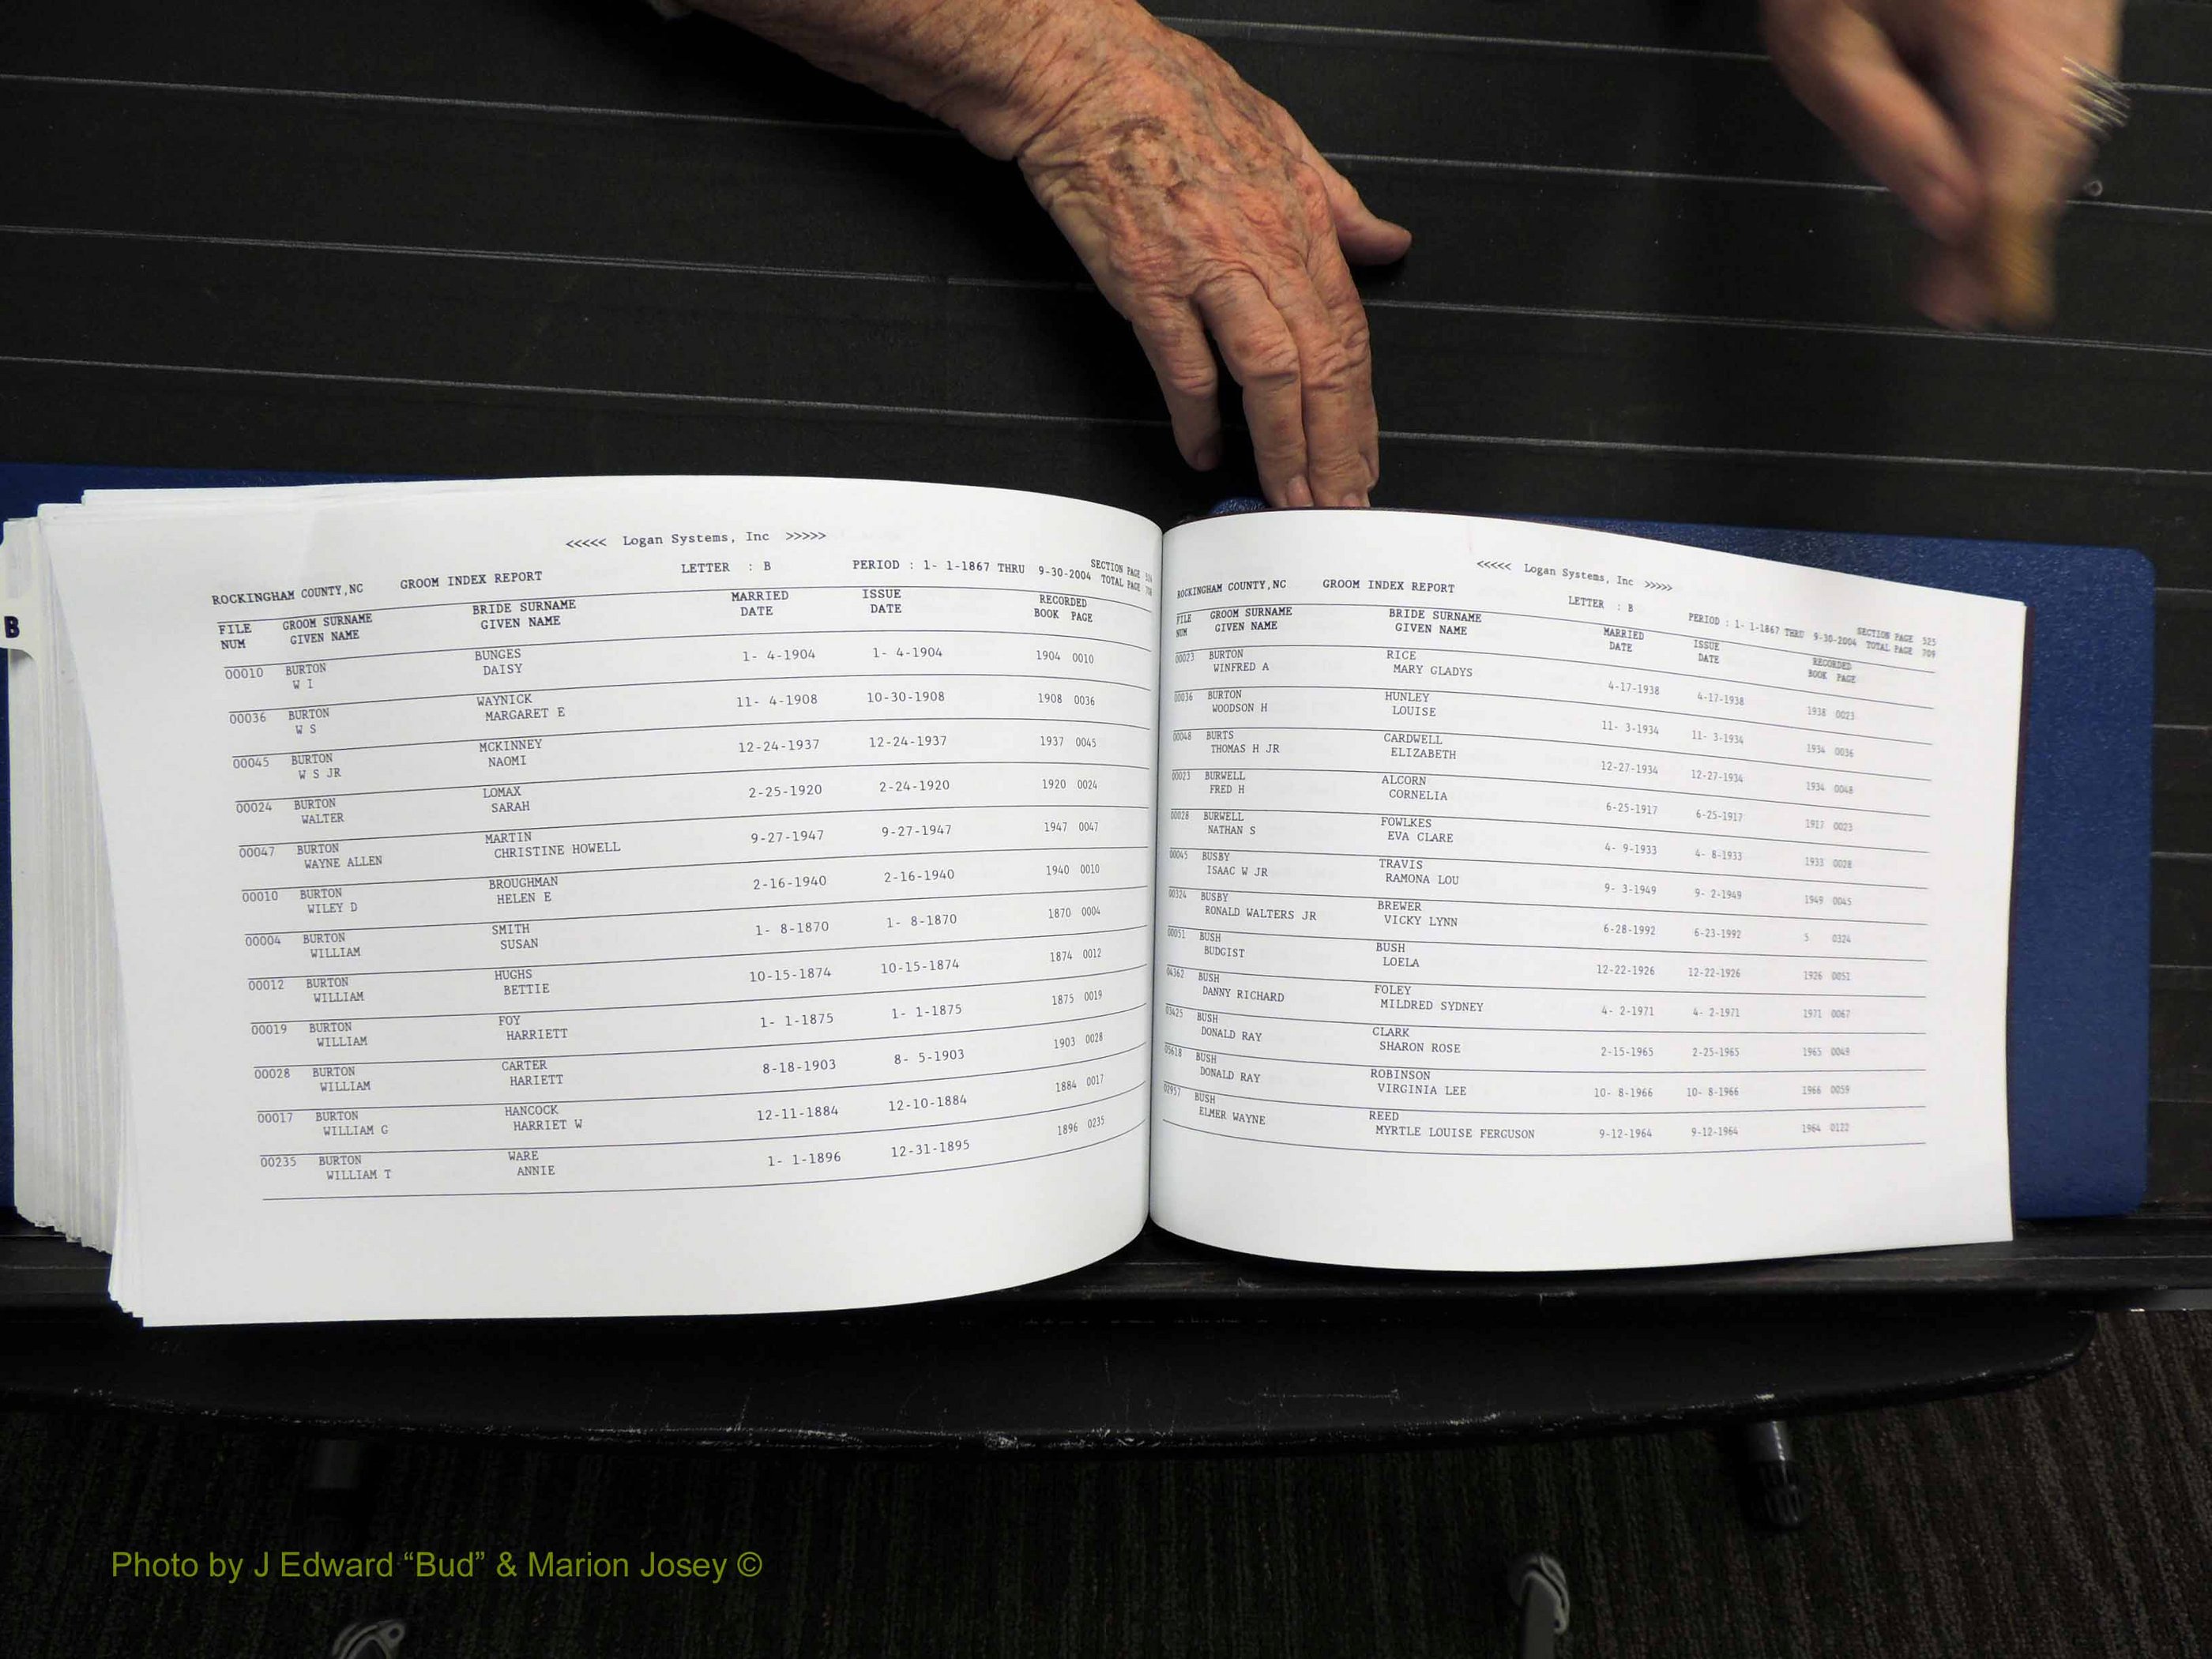 B
<<<<< Logan Systems, Inc >>>>>
ROCKINGHAM COUNTY,NC GROOM INDEX REPORT LETTER : B PERIOD : 1- 1-1867 THRU 9-30-2004 SECTION PAGE
TOTAL PAGE
FILE GROOM SURNAME BRIDE SURNAME MARRIED ISSUE RECORDED
NUM GIVEN NAME GIVEN NAME DATE DATE BOOK PAGE
00010 BURTON BUNGES 1- 4-1904 1- 4-1904 1904 0010
W I DAISY
00036 BURTON WAYNICK 11- 4-1908 10-30-1908 1908 0036
W S MARGARET E
00045 BURTON MCKINNEY 12-24-1937 12-24-1937 1937 0045
W S JR NAOMI
00024 BURTON LOMAX 2-25-1920 2-24-1920 1920 0024
WALTER SARAH
00047 BURTON MARTIN 9-27-1947 9-27-1947 1947 0047
WAYNE ALLEN CHRISTINE HOWELL
00010 BURTON BROUGHMAN 2-16-1940 2-16-1940 1940 0010
WILEY D HELEN E
00004 BURTON SMITH 1- 8-1870 1- 8-1870 1870 0004
WILLIAM SUSAN
00012 BURTON HUGHS 10-15-1874 10-15-1874 1874 0012
WILLIAM BETTIE
00019 BURTON FOY 1- 1-1875 1- 1-1875 1875 0019
WILLIAM HARRIETT
00028 BURTON CARTER 8-18-1903 8- 5-1903 1903 0028
WILLIAM HARIETT
00017 BURTON HANCOCK 12-11-1884 12-10-1884 1884 0017
WILLIAM G HARRIET W
00235 BURTON WARE 1- 1-1896 12-31-1895 1896 0235
WILLIAM T ANNIE
<<<<< Logan Systems, Inc >>>>>
ROCKINGHAM COUNTY,NC GROOM INDEX REPORT LETTER : B PERIOD : 1- 1-1867 THRU 9-30-2004 SECTION PAGE 525
TOTAL PAGE 709
FILE GROOM SURNAME BRIDE SURNAME MARRIED ISSUE RECORDED
NUM GIVEN NAME GIVEN NAME DATE DATE BOOK PAGE
00023 BURTON RICE 4-17-1938 4-17-1938 1938 0023
WINFRED A MARY GLADYS
00036 BURTON HUNLEY 11- 3-1934 11- 3-1934 1934 0036
WOODSON H LOUISE
00048 BURTS CARDWELL 12-27-1934 12-27-1934 1934 0048
THOMAS H JR ELIZABETH
00023 BURWELL ALCORN 6-25-1917 6-25-1917 1917 0023
FRED H CORNELIA
00028 BURWELL FOWLKES 4- 9-1933 4- 8-1933 1933 0028
NATHAN S EVA CLARE
00045 BUSBY TRAVIS 9- 3-1949 9- 2-1949 1949 0045
ISAAC W JR RAMONA LOU
00324 BUSBY BREWER 6-28-1992 6-23-1992 5 0324
RONALD WALTERS JR VICKY LYNN
00051 BUSH BUSH 12-22-1926 12-22-1926 1926 0051
BUDGIST LOELA
04362 BUSH FOLEY 4- 2-1971 4- 2-1971 1971 0067
DANNY RICHARD MILDRED SYDNEY
03425 BUSH CLARK 2-15-1965 2-25-1965 1965 0049
DONALD RAY SHARON ROSE
05618 BUSH ROBINSON 10- 8-1966 10- 8-1966 1966 0059
DONALD RAY VIRGINIA LEE
02957 BUSH REED 9-12-1964 9-12-1964 1964 0122
ELMER WAYNE MYRTLE LOUISE FERGUSON
Photo by J Edward “Bud” & Marion Josey ©